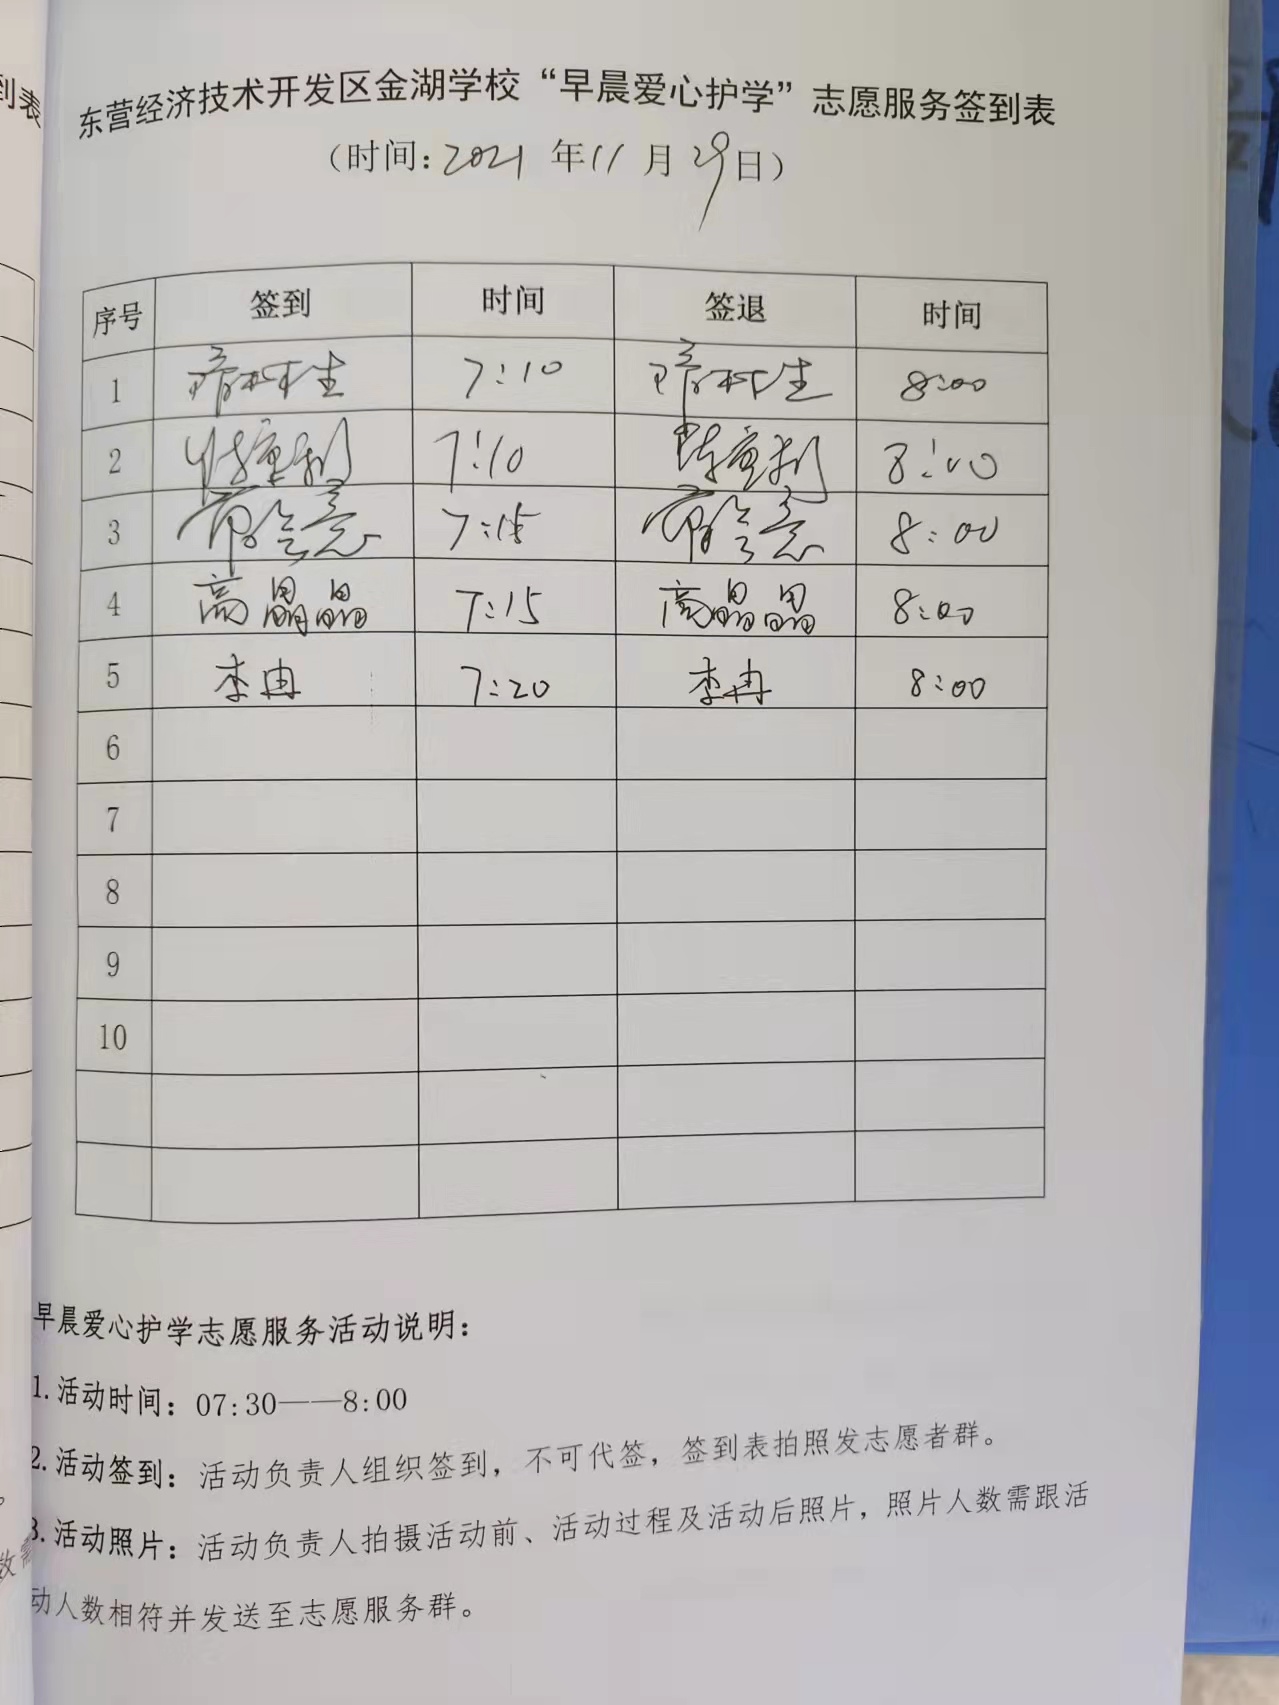 到表
东营经济技术开发区金湖学校“早晨爱心护学”志愿服务签到表
(时间: 2021 年 11 月 29 日)
序号 签到 时间 签退 时间
1 7:10 8:00
2 7:10 8:00
3 7:15 8:00
4 高晶晶 7:15 高晶晶 8:00
5 李冉 7:20 李冉 8:00
6
7
8
9
10
早晨爱心护学志愿服务活动说明:
1.活动时间: 07:30——8:00
2.活动签到: 活动负责人组织签到, 不可代签, 签到表拍照发志愿者群。
3.活动照片: 活动负责人拍摄活动前、活动过程及活动后照片, 照片人数需跟活
动人数相符并发送至志愿服务群。
数需